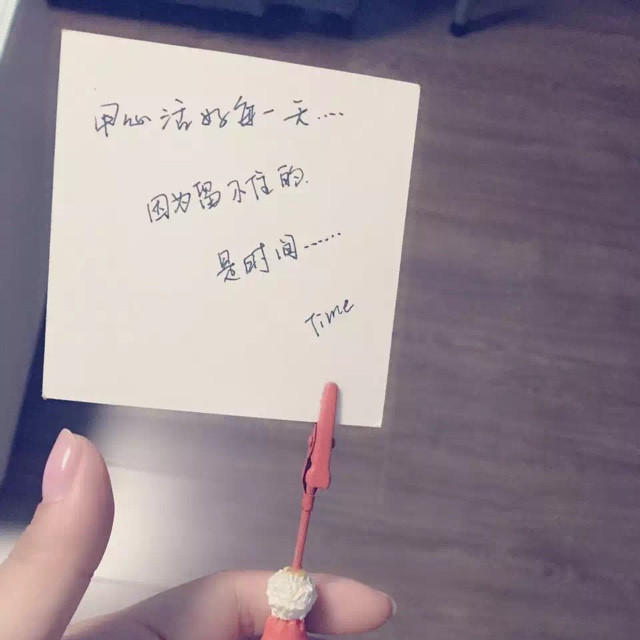 用心活好每一天....
因为留不住的.
是时间......
Time